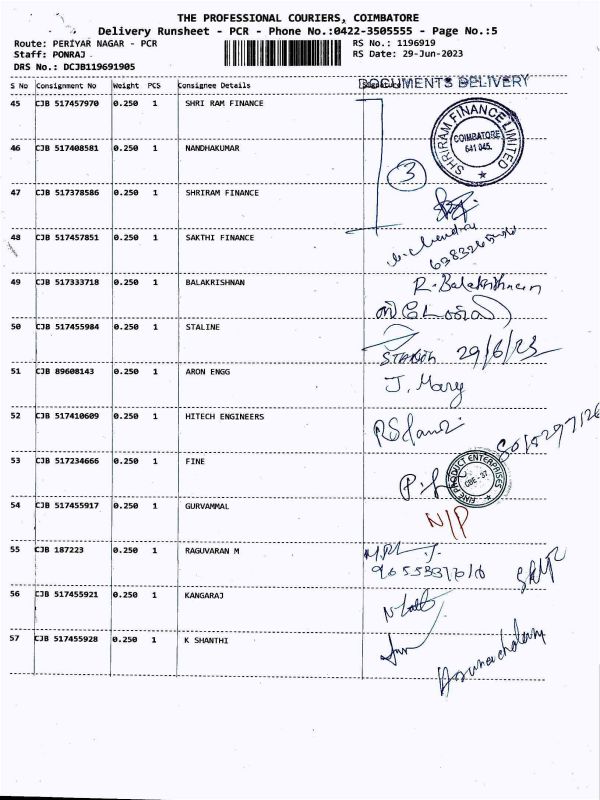 THE PROFESSIONAL COURIERS, COIMBATORE
Delivery Runsheet - PCR - Phone No.:0422-3505555 - Page No.:5
Route: PERIYAR NAGAR - PCR
RS No.: 1196919
Staff: PONRAJ
RS Date: 29-Jun-2023
DRS No.: DCJB119691905
DOCUMENTS DELIVERY
S No Consignment No Weight PCS Consignee Details
45 CJB 517457970 0.250 1 SHRI RAM FINANCE
SHRIRAM FINANCE LIMITED
COIMBATORE
641 045.
46 CJB 517408581 0.250 1 NANDHAKUMAR
3
47 CJB 517378586 0.250 1 SHRIRAM FINANCE
48 CJB 517457851 0.250 1 SAKTHI FINANCE
49 CJB 517333718 0.250 1 BALAKRISHNAN
R. Balakrishnan
50 CJB 517455984 0.250 1 STALINE
29/6/23
51 CJB 89608143 0.250 1 ARON ENGG
J. Mary
52 CJB 517410609 0.250 1 HITECH ENGINEERS
53 CJB 517234666 0.250 1 FINE
FINE PRODUCT ENTERPRISES
CBE - 37
54 CJB 517455917 0.250 1 GURVAMMAL
N/P
55 CJB 187223 0.250 1 RAGUVARAN M
56 CJB 517455921 0.250 1 KANGARAJ
57 CJB 517455928 0.250 1 K SHANTHI
Arunachalam